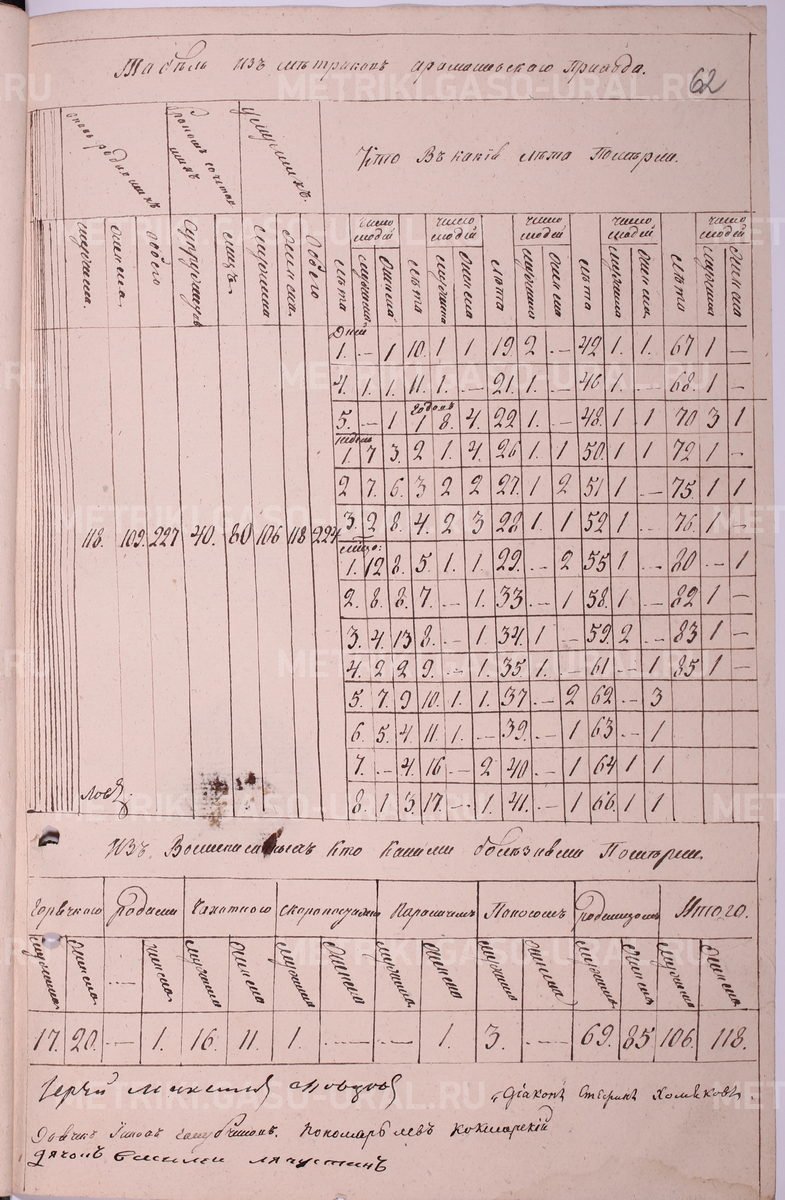 Табѣль изъ метриковъ арамашевскаго Прихода.
62
Кто Въ какiя лѣта Померли.
вновь родившихъ
бракомъ сочетавшихъ
умершихъ.
число людей число людей число людей число людей число людей
мужеска. женска. обоего супружествъ лицъ. мужеска женска. обоего
лѣта мужеска женска лѣта мужеска женска лѣта мужеска женска лѣта мужеска женска. лѣта мужеска женска
Дней
1. — 1 10. 1 1 19. 2 — 42 1. 1. 67 1 —
4. 1. 1. 11. 1. — 21. 1. — 46 1. — 68. 1 —
годовъ
5. — 1 1 8. 4. 22 1. — 48. 1 1 70 3 1
недель
1. 7 3. 2 1. 4. 26 1. 1 50. 1 1 72 1 —
2 7. 6. 3 2 2 27. 1 2 51 1 — 75. 1 1
118. 109. 227 40. 80 106 118 224
3. 2 8. 4. 2 3 28 1. 1 52 1 — 76. 1 —
1. 12 8. 5. 1. 1. 29. — 2 55 1 — 80 — 1
2. 8. 8. 7. — 1. 33. — 1 58. 1 — 82 1 —
3. 4. 13 8. — 1. 34. 1 — 59. 2 — 83 1 —
4. 2 2 9. — 1. 35 1. — 61 — 1 85 1 —
5. 7. 9 10. 1. 1. 37. — 2 62 — 3
6. 5. 4. 11. 1. — 39. — 1 63 — 1
7. — 4. 16 — 2 40. — 1 64 1 1
8. 1 3. 17. — 1. 41. — 1 66. 1 1
Изъ Вышеписанныхъ кто какими болезньми Померли.
Горячкою родами Чахоткою скоропостижно Параличемъ Поносомъ родимцомъ Итого.
мужеска женска — женска мужеска женска мужеска женска мужеска женска мужеска женска мужеска женска мужеска женска
17. 20. — 1. 16. 11. 1. — — 1. 3. — 69. 85 106. 118.
Дiаконъ Стефанъ Хомяковъ.
Пономарь Левъ Кокшарскiй
Дячокъ Василей Ляпустинъ
METRIKI.GASO-URAL.RU